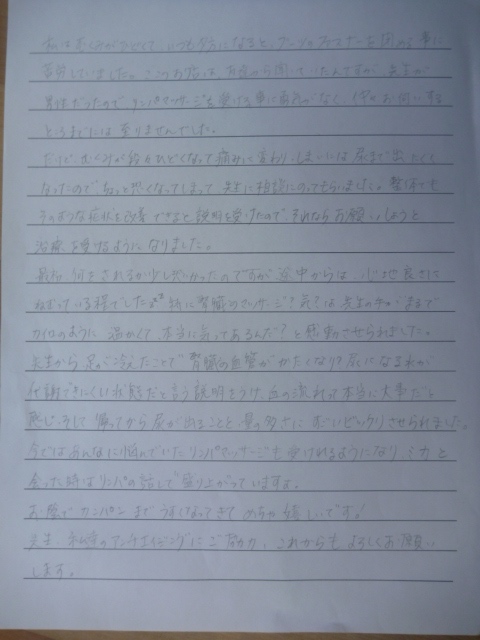 私はむくみがひどくて、いつも夕方になるとブーツのファスナーを閉める事に
苦労していました。このお店は、友達から聞いていたんですが、先生が
男性だったので、リンパマッサージを受ける事に勇気がなく、なかなかお伺いする
ところまでには至りませんでした。
だけど、むくみが段々ひどくなって痛みに変わり、しまいには尿まで出にくく
なったので怖くなってしまって、先生に相談にのってもらいました。整体でも
そのような症状を改善できると説明を受けたので、それならお願いしようと
治療を受けるようになりました。
最初、何をされるか少し恐かったのですが途中からは、心地良さに
ねむっている程でした 特に腎臓のマッサージ?気?は先生の手がまるで
カイロのように温かくて、本当に気ってあるんだ?と感動させられました。
先生から足が冷えたことで腎臓の血管がかたくなり?尿になる水が
代謝できにくい状態だと言う説明をうけ、血の流れって本当に大事だと
感じ、そして帰ってから尿が出ることと、量の多さにすごいビックリさせられました。
今ではあんなに悩んでいたリンパマッサージも受けれるようになり、
会った時はリンパの話しで盛り上がっています。
お陰でカンパンまでうすくなってきてめちゃ嬉しいです!
先生、私達のアンチエイジングにご協力、これからもよろしくお願い
します。